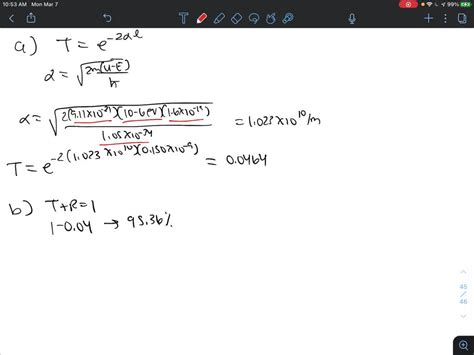 10:53 AM Mon Mar 7
99%
a) T = e^-2αL
α = √2m(U-E) / ħ
α = √2(9.11×10^-31)(10-6 eV)(1.6×10^-19) / 1.05×10^-34 = 1.023×10^10/m
T = e^-2(1.023×10^10)(0.150×10^-9) = 0.0464
b) T+R=1
1-0.04 → 95.36%
45
/
46